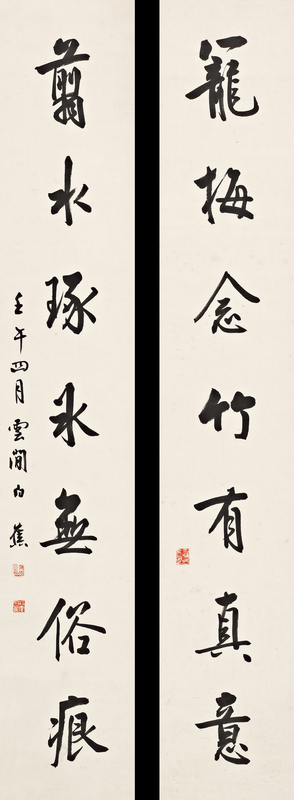 籠梅念竹有真意
翦水琢氷無俗痕
壬午四月雲間白蕉